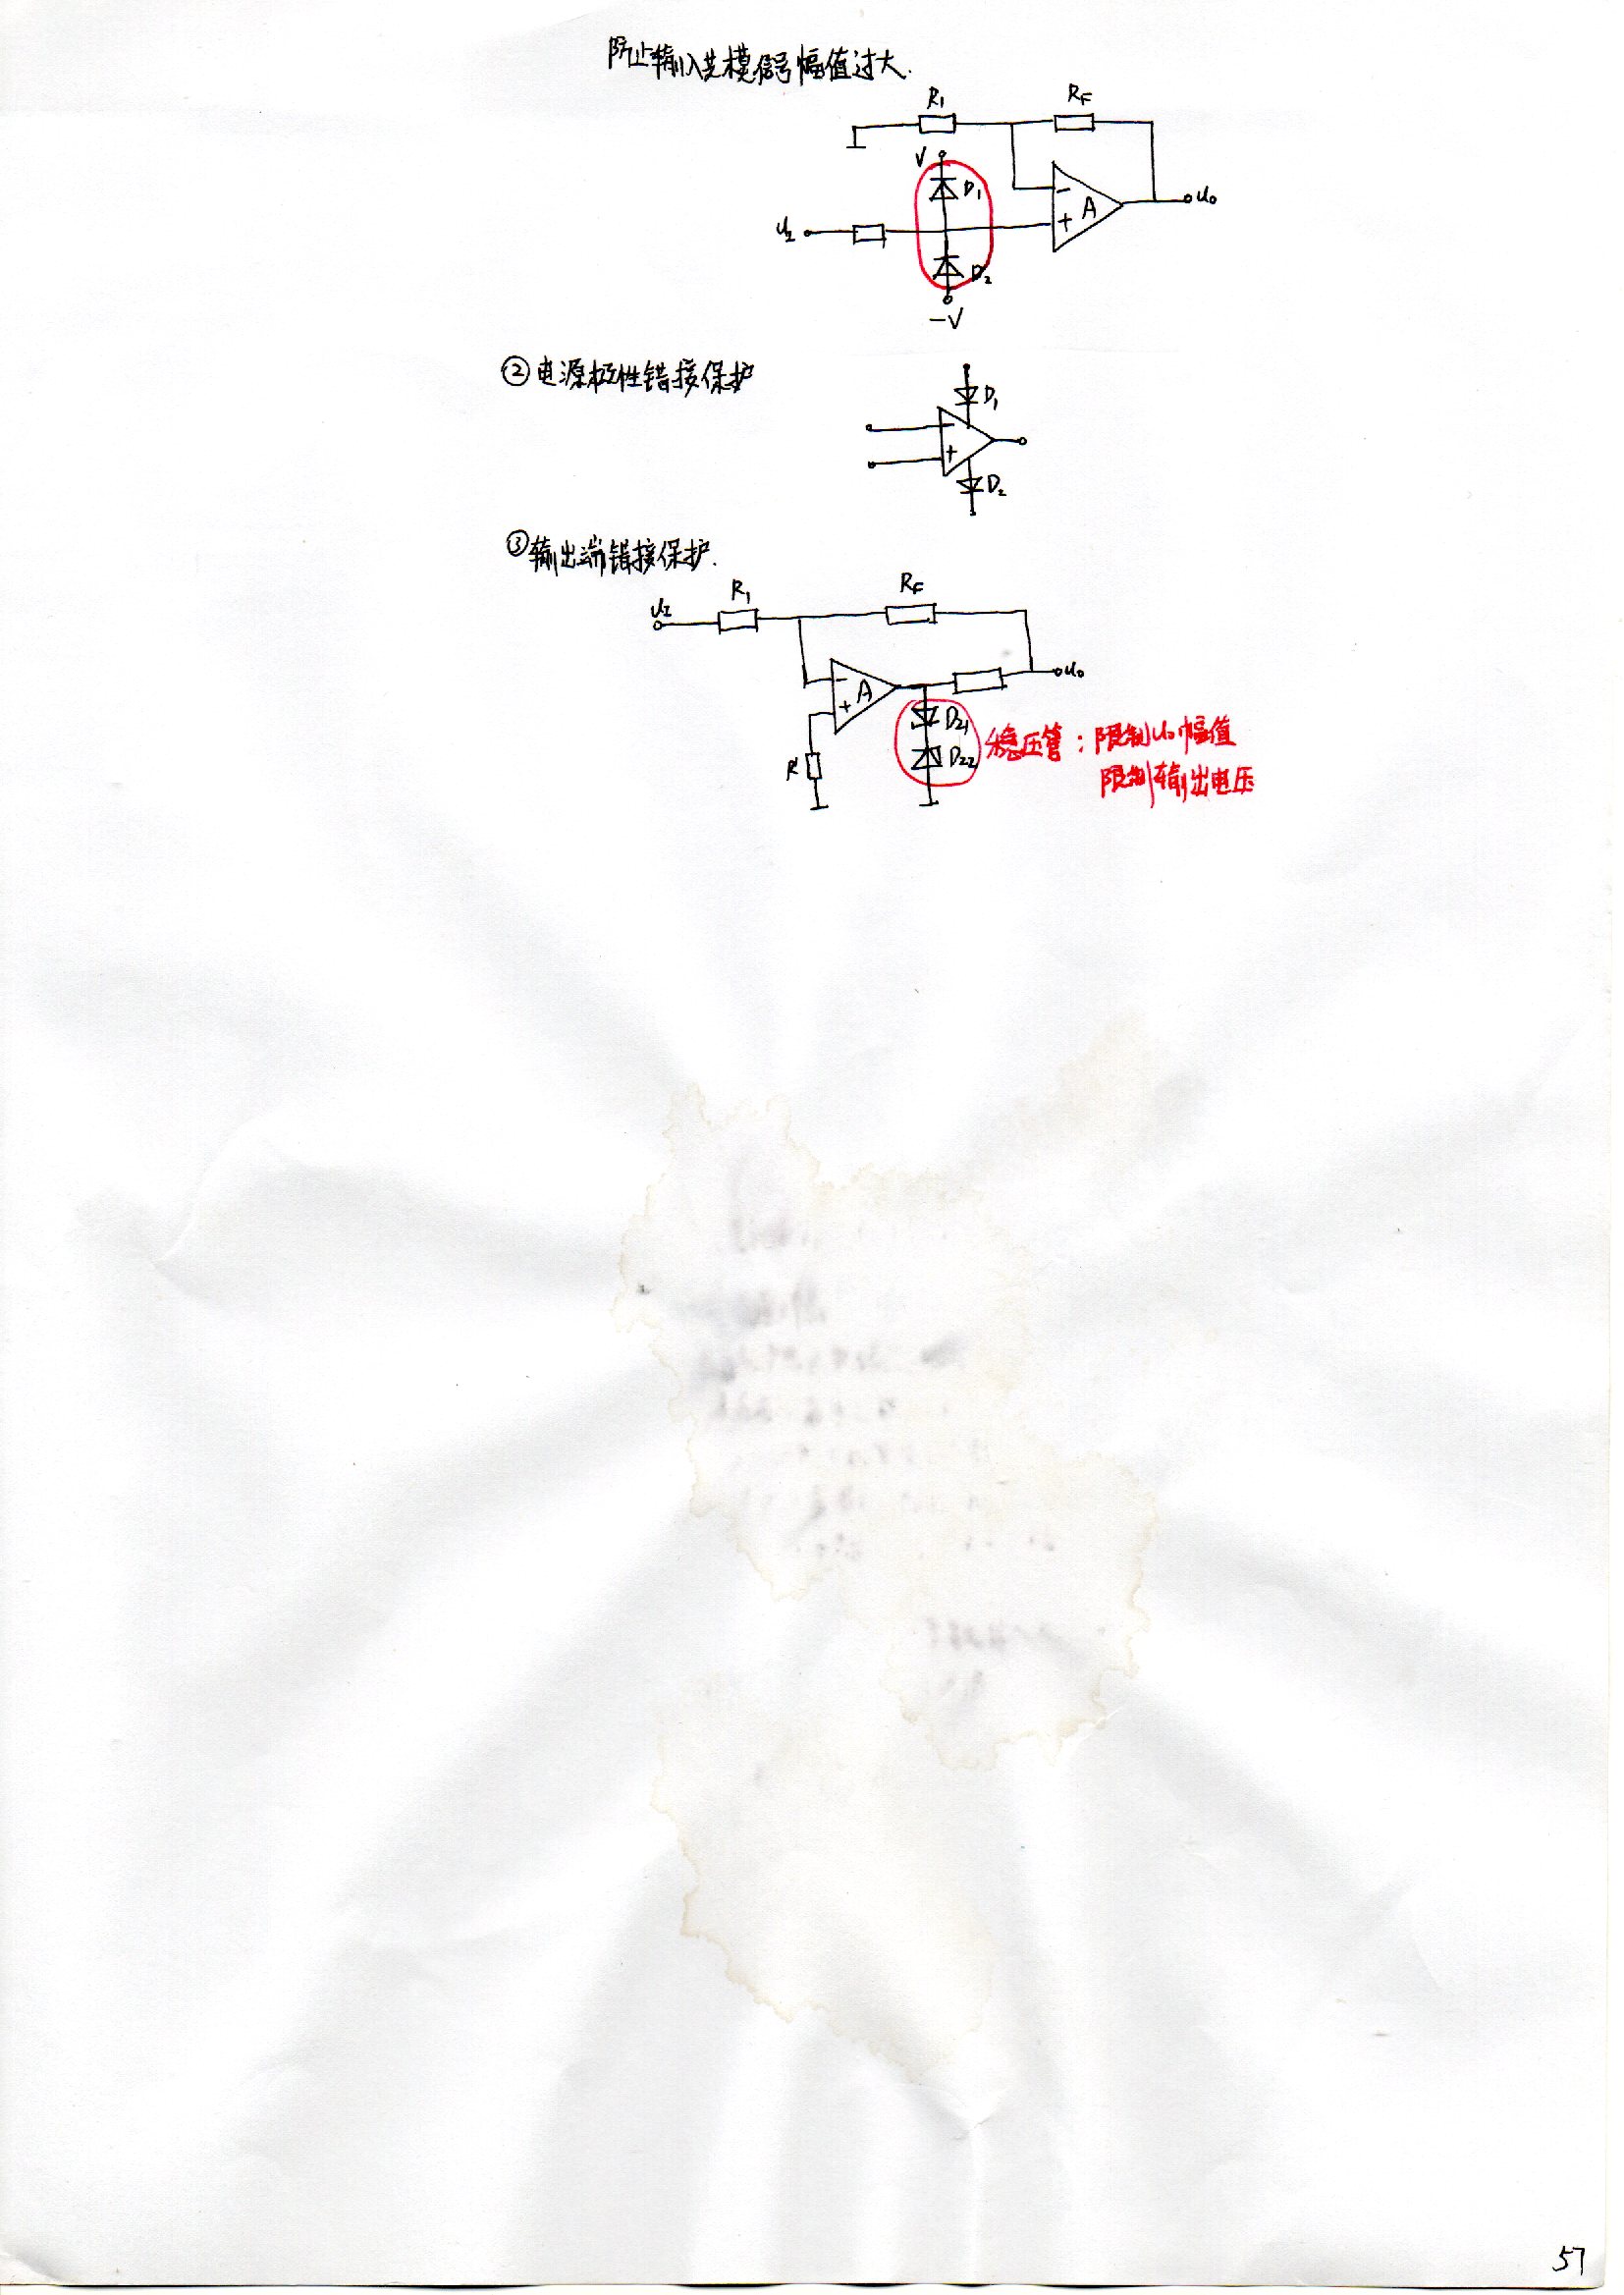 防止输入共模信号幅值过大.
R₁ R_F
V
D₁
A
- +
u_I
u_o
D₂
-V
②电源极性错接保护
D₁
- +
D₂
③输出端错接保护.
u_I R₁ R_F
A
- +
u_o
D_Z1
D_Z2
R'
稳压管：限制u_o幅值
限制输出电压
57